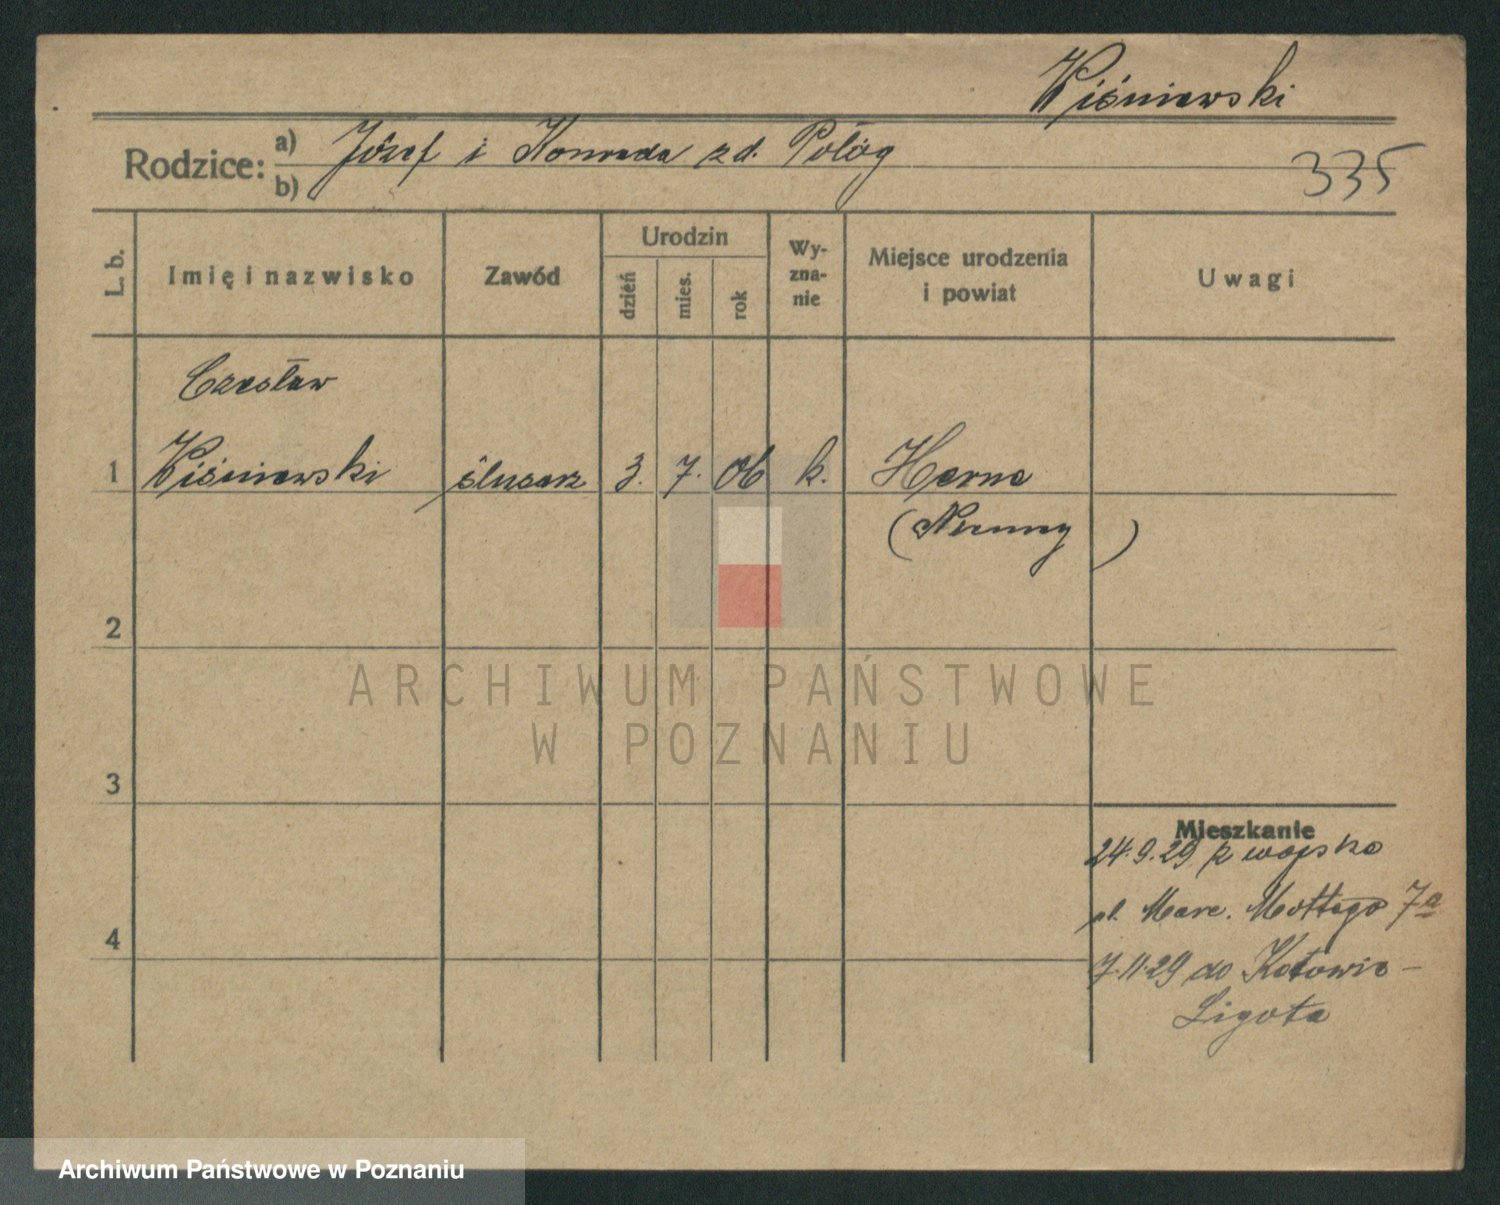 Wiśniewski
Rodzice: a) Józef i Konrada zd. Połóg
b)
335
L. b.
Imię i nazwisko
Zawód
Urodzin
dzień
mies.
rok
Wy-
zna-
nie
Miejsce urodzenia
i powiat
Uwagi
Czesław
1 Wiśniewski ślusarz 3. 7. 06 k. Herne
(Niemcy)
2
ARCHIWUM PAŃSTWOWE
W POZNANIU
3
Mieszkanie
24.9.29 z wojska
pl. Marc. Mottego 7a
4
7.11.29 do Katowic-
Ligota
Archiwum Państwowe w Poznaniu